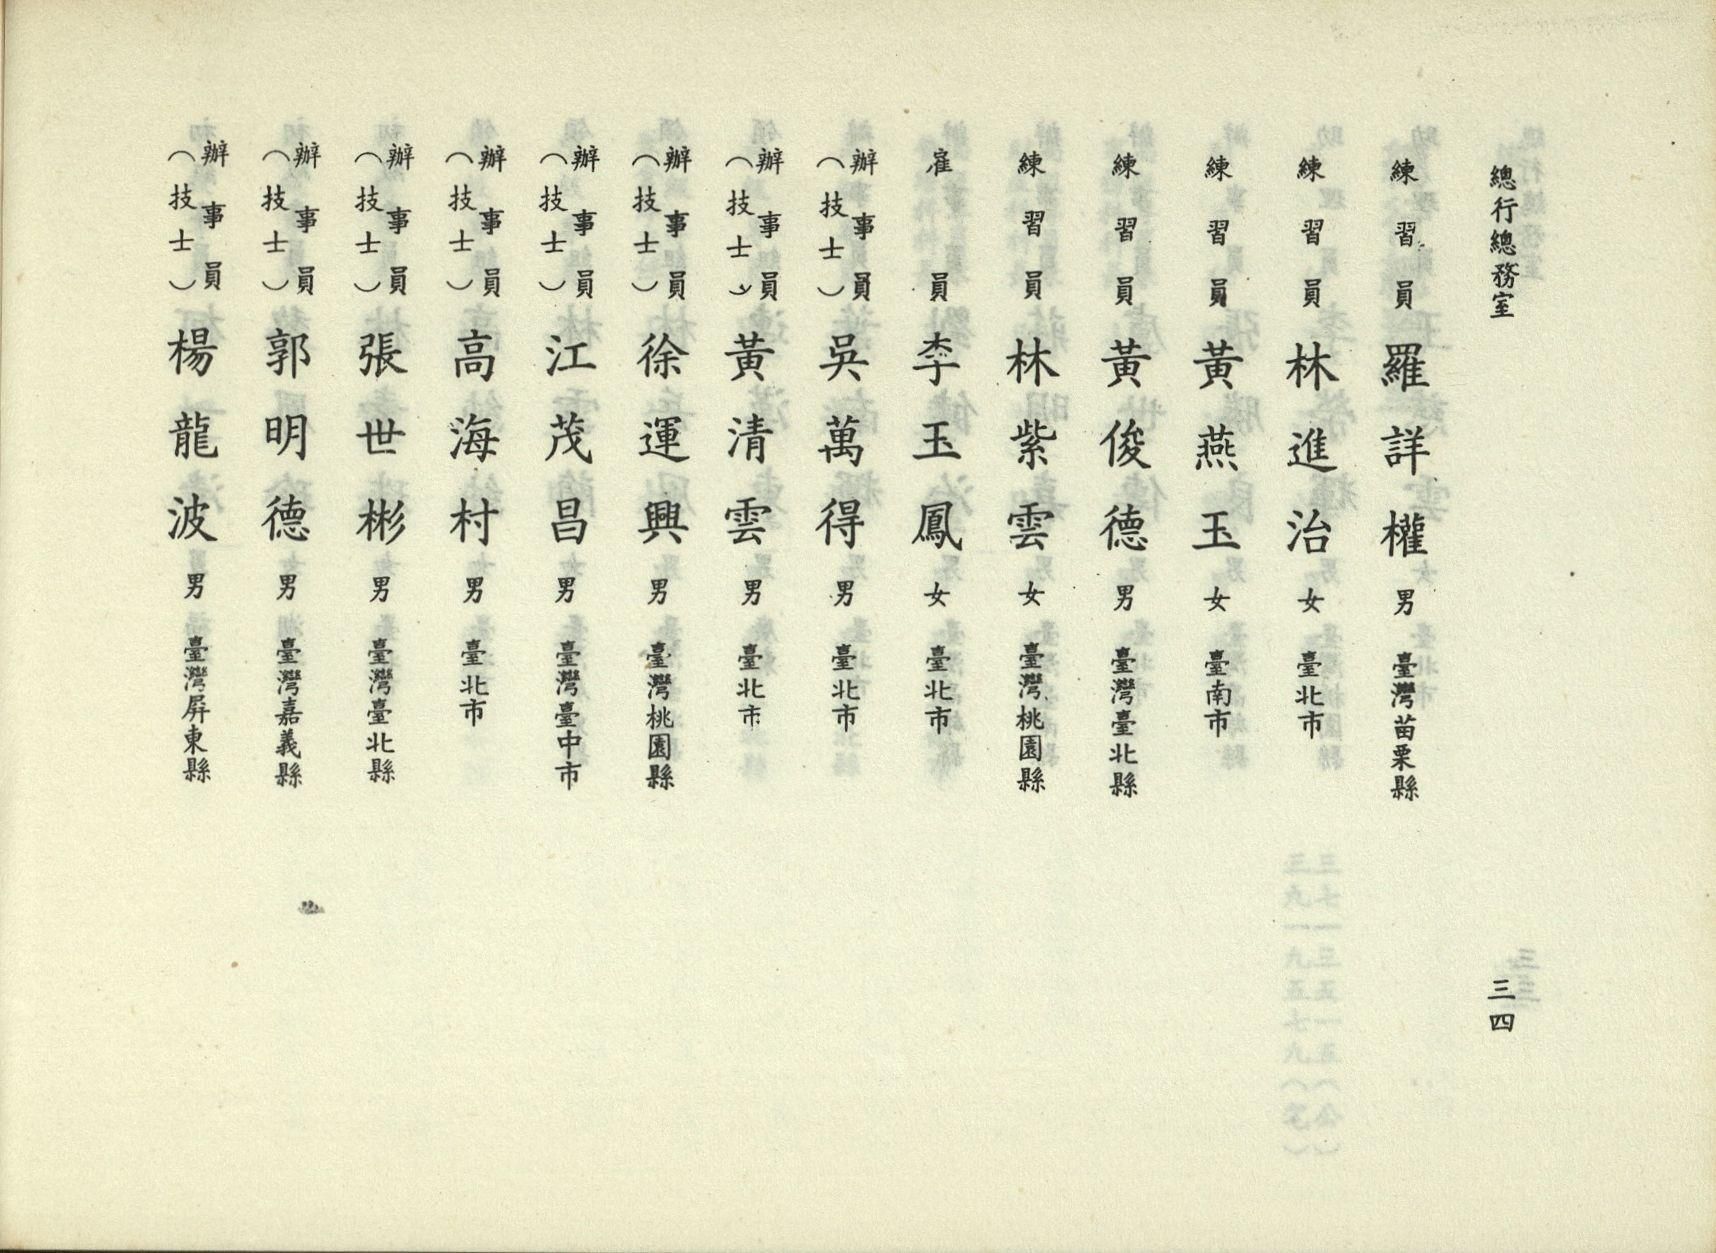 總行總務室
三四
練習員 羅詳權 男 臺灣苗栗縣
練習員 林進治 女 臺北市
練習員 黃燕玉 女 臺南市
練習員 黃俊德 男 臺灣臺北縣
練習員 林紫雲 女 臺灣桃園縣
雇員 李玉鳳 女 臺北市
辦事員（技士） 吳萬得 男 臺北市
辦事員（技士） 黃清雲 男 臺北市
辦事員（技士） 徐運興 男 臺灣桃園縣
辦事員（技士） 江茂昌 男 臺灣臺中市
辦事員（技士） 高海村 男 臺北市
辦事員（技士） 張世彬 男 臺灣臺北縣
辦事員（技士） 郭明德 男 臺灣嘉義縣
辦事員（技士） 楊龍波 男 臺灣屏東縣